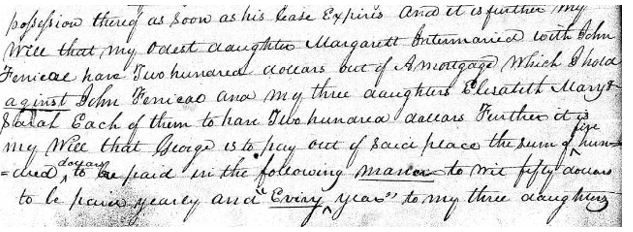 possession thereof as soon as his lease Expiris And it is further my
Will that my Odest daughter Margarett Intermaried with John
Fenicae have Two hundred dollars out of A mortgage Which I hold
aginst John Fenicae and my three daughters Elisabeth Mary &
Sarah Each of them to have Two hundred dollars Further it is
my Will that George is to pay out of said place the sum of five hun-
=dred dollars to be paid in the following maner to wit fifty dollars
to be paid yearly and "Eviry year" to my three daughters